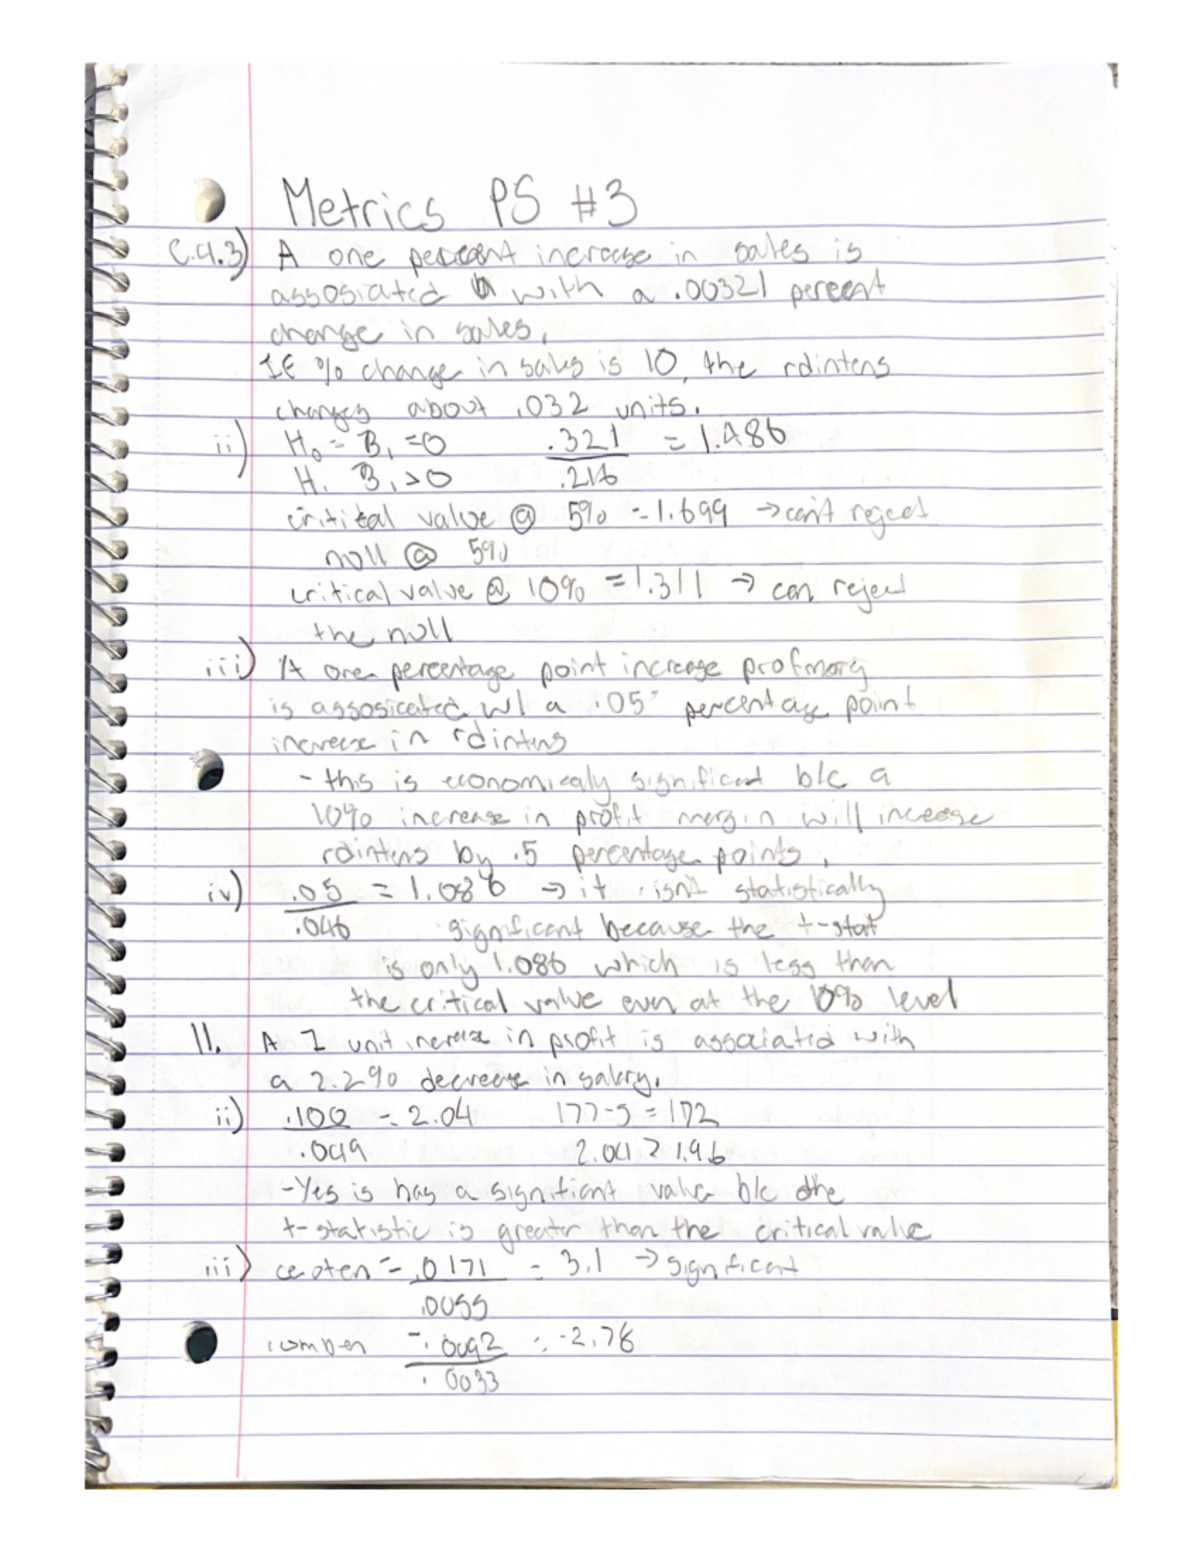 Metrics PS #3
C.4.3) A one percent increase in sales is
assosiated with a .00321 percent
change in sales.
If % change in sales is 10, the rdintens
changes about .032 units.
ii) H₀ = B₁ = 0 .321 = 1.486
H₁ B₁ > 0 .216
critital value @ 5% = 1.699 → can't reject
null @ 5%
critical value @ 10% = 1.311 → can reject
the null
iii) A one percentage point increase profmarg
is assosicated w/ a .05 percentage point
increase in rdintens
- this is economicaly significant b/c a
10% increase in profit margin will increase
rdintens by .5 percentage points.
iv) .05 = 1.086 → it isn't statistically
.046 significant because the t-stat
is only 1.086 which is less than
the critical value even at the 10% level
11. A 1 unit increase in profit is associated with
a 2.2% decrease in salary.
ii) .100 = 2.04 177-5 = 172
.049 2.04 > 1.96
- Yes is has a significant value b/c the
t-statistic is greater than the critical value
iii) ceoten = .0171 = 3.1 → significant
.0055
comten -.0092 = -2.78
.0033